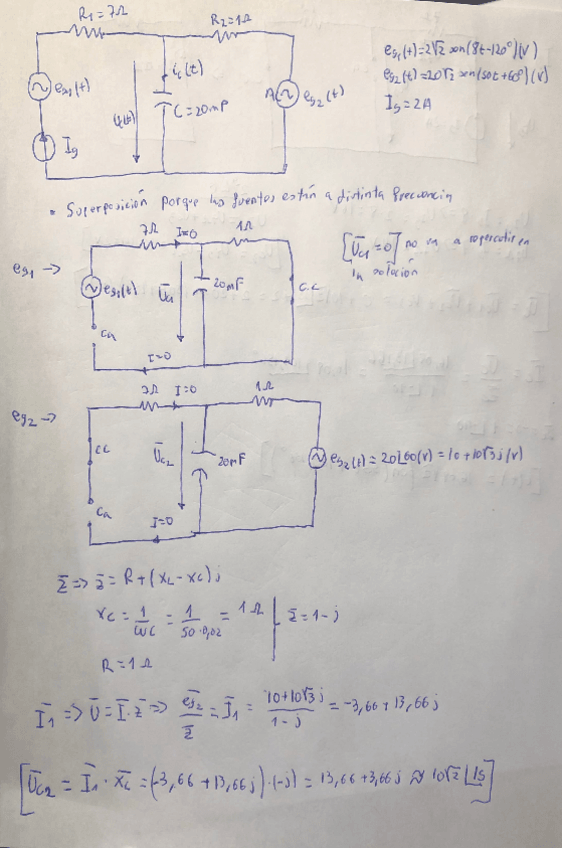 R₁=7Ω R₂=1Ω
eg₁(t)
Ig
Uc(t)
ic(t)
C=20mF
A
eg₂(t)
eg₁(t)=2√2 sen(8t-120°)(V)
eg₂(t)=20√2 sen(50t+60°)(V)
Ig=2A
• Superposición porque las fuentes están a distinta frecuencia
eg₁ →
7Ω I=0 1Ω
eg₁(t)
U̅c₁
20mF
c.c
ca
I=0
[U̅c₁=0] no va a repercutir en
la solución
eg₂ →
3Ω I=0 1Ω
cc
ca
U̅c₂
20mF
I=0
eg₂(t)=20∟60(V)=10+10√3j(V)
Z̅ => Z̅=R+(XL-XC)j
XC = 1/WC = 1/50·0,02 = 1Ω | Z̅=1-j
R=1Ω
I̅₁ => U̅=I̅·Z̅ => e̅g₂/Z̅ = I̅₁ = 10+10√3j/1-j = -3,66+13,66j
[U̅c₂ = I̅₁·X̅c = (-3,66+13,66j)·(-j) = 13,66+3,66j ≈ 10√2 ∟15]